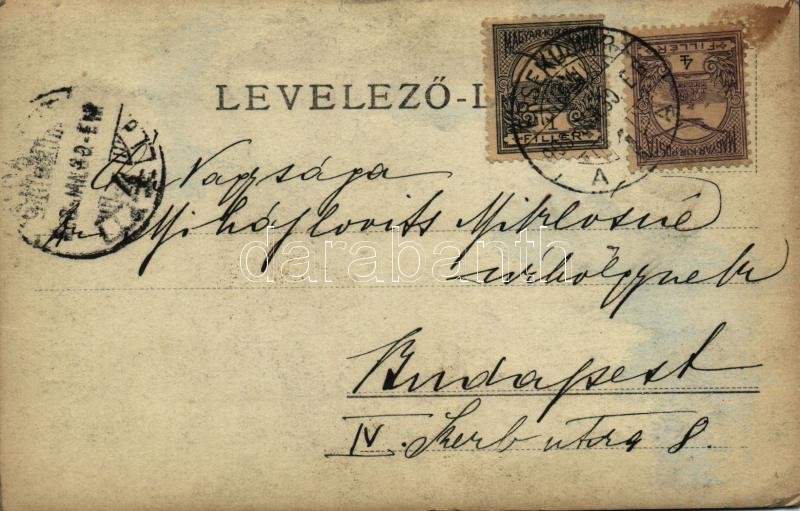 LEVELEZŐ-L
MAGYAR KIR. POSTA
1
FILLÉR
MAGYAR KIR. POSTA
4
FILLÉR
ÉRSEKUJVÁR
A
Ő Nagysága
Mihájlovits Miklósné
úrhölgynek
Budapest
IV. Szerb utca 8.
darabanth